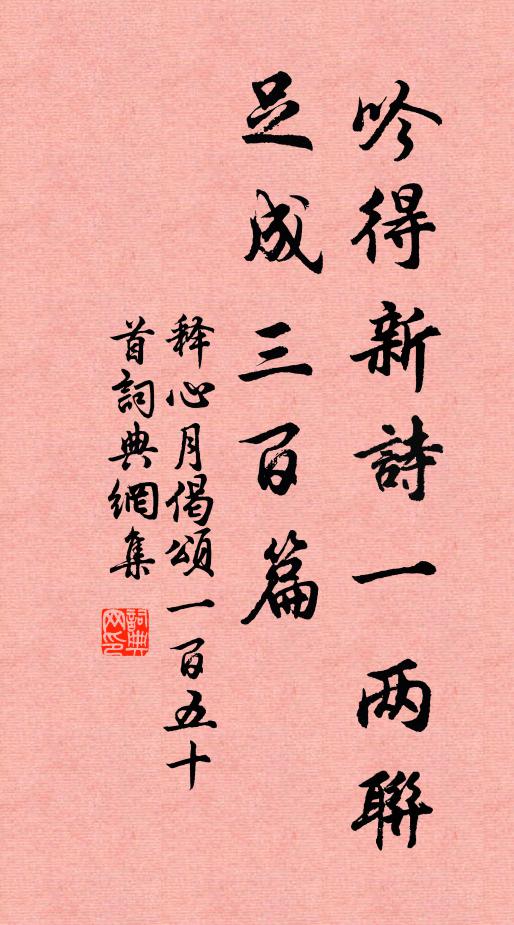 吟得新詩一两聯
足成三百篇
释心月偈頌一百五十
首詞典網集
詞典
网印